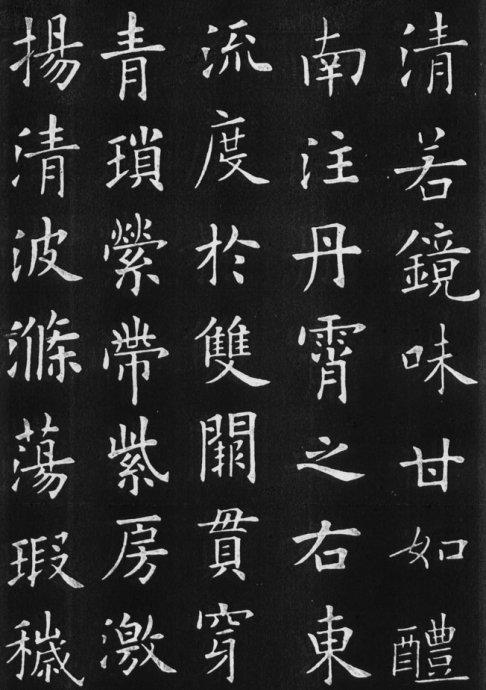 清若鏡味甘如醴
南注丹霄之右東
流度於雙闕貫穿
青瑣縈帶紫房激
揚清波滌蕩瑕穢